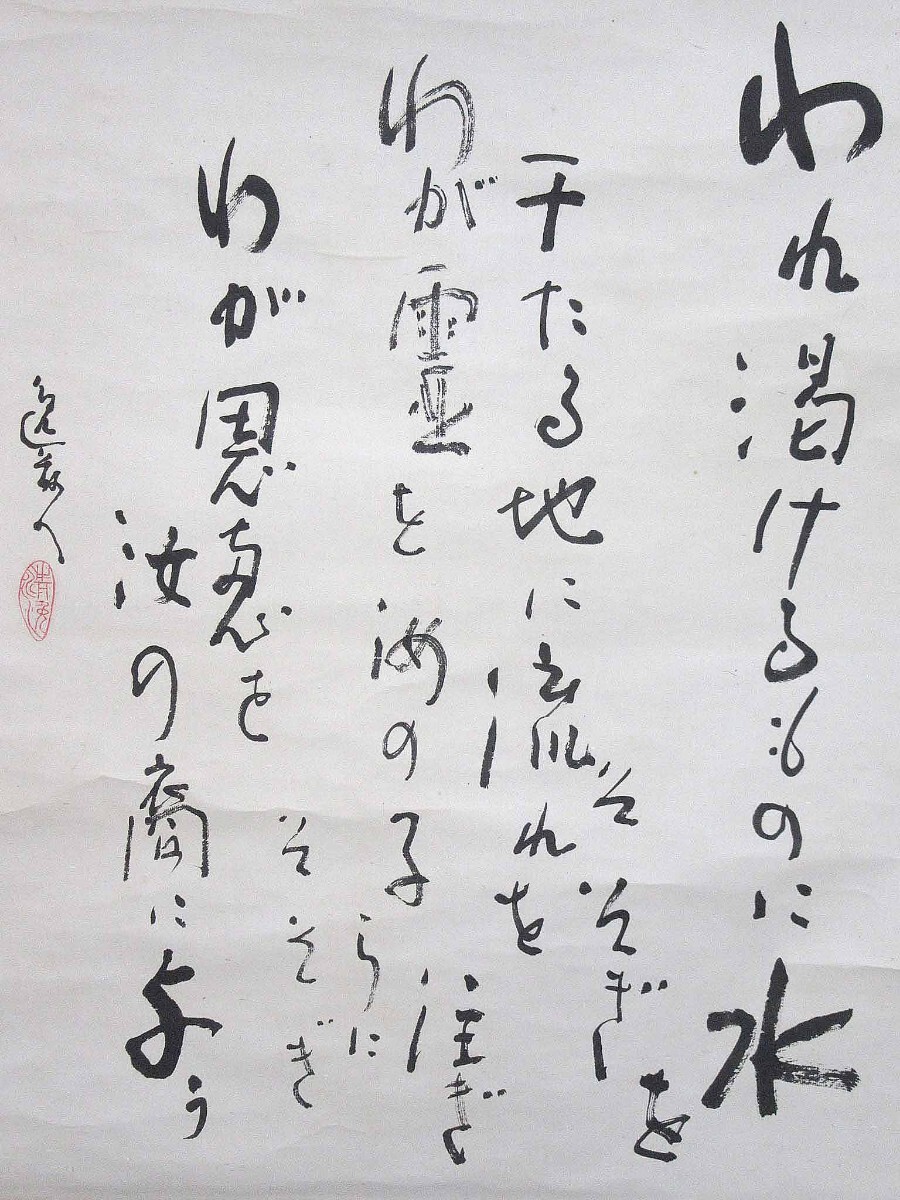 われ渇けるものに水
を
そそぎ
干たる地に流れを
注ぎ
わが霊を汝の子
らに
そそぎ
わが恩恵を
汝の裔に与う